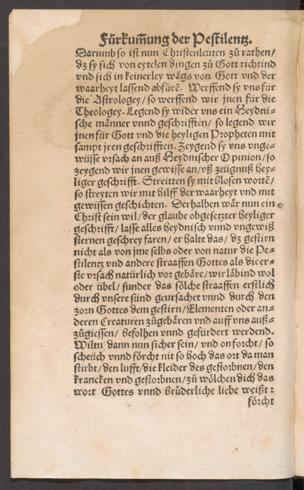 Fürkum̃ung der Pestilentz.
Darumb so ist nun Christenleuten zů rathen/
dz sy sich von eytelen dingen zů Gott richtind
vnd sich in keinerley wägs von Gott vnd der
waarheyt lassend abfürẽ. Werffend sy vns für
die Astrologey/ so werffend wir jnen für die
Theologey. Legend sy wider vns ein Heydni-
sche männer vnnd geschrifften/ so legend wir
jnen für Gott vnd die heyligen Propheten mit
sampt jren geschrifften. Zeygend sy vns vnge-
wüsse vrsach an auß Heydnischer Opinion/ so
zeygend wir jnen gewisse an/vß zeügnuß hey-
liger geschrifft. Streitten sy mit blosen wortẽ/
so streyten wir mit hilff der waarheyt vnd mit
gewissen geschichten. Derhalben wär nun ein
Christ sein wil/ der glaube obgesetzter heyliger
geschrifft/ lasse alles heydnisch vnnd vngewiß
sternen geschrey faren/ er halte das/ dz gestirn
nicht als von jme selbs oder von natur die Pe-
stilentz vnd andere straaffen Gottes als die er-
ste vrsach natürlich vor gebäre/ wir läbind wol
oder übel/ sunder das sölche straaffen erstlich
durch vnsere sünd geursachet vnnd durch den
zorn Gottes dem gestirn/ Elementen oder an-
deren Creaturen zůgebären vnd auff vns auß-
zůgiessen/ befolhen vnnd gefürdert werdend.
Wiltu dann nun sicher sein/ vnd on forcht/ so
scheüch vnnd förcht nit so hoch das ort da man
stirbt/ den lufft/ die kleider des gestorbnen/ den
krancken vnd gestorbnen/ zů wölchen dich das
wort Gottes vnnd brüderliche liebe weißt:
förcht